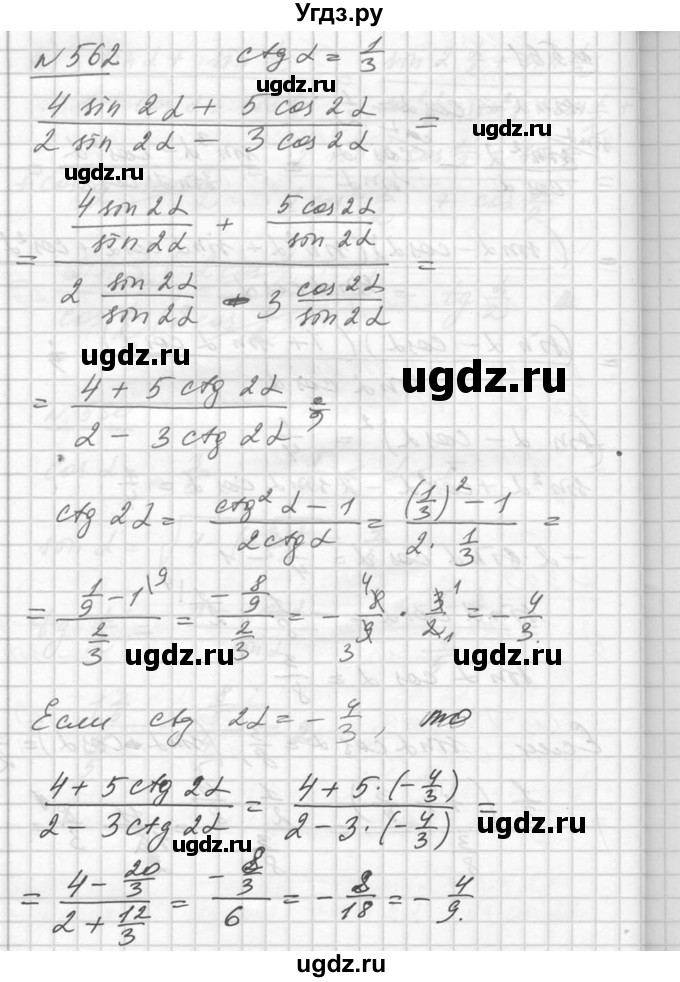 Угдз.ру
№562 ctg α = 1/3
ugdz.ru
(4 sin 2α + 5 cos 2α)/(2 sin 2α − 3 cos 2α) =
ugdz.ru
ugdz.ru
= (4 sin 2α/sin 2α + 5 cos 2α/sin 2α)/(2 sin 2α/sin 2α − 3 cos 2α/sin 2α) =
ugdz.ru
ugdz.ru
ugdz.ru
= (4 + 5 ctg 2α)/(2 − 3 ctg 2α)
ctg 2α = (ctg² α − 1)/(2 ctg α) = ((1/3)² − 1)/(2 · 1/3) =
ugdz.ru
= (1/9 − 1\9)/(2/3) = (− 8/9)/(2/3) = − 8/9 · 3/2 = − 4/3.
ugdz.ru
ugdz.ru
Если ctg 2α = − 4/3, то
(4 + 5 ctg 2α)/(2 − 3 ctg 2α) = (4 + 5·(− 4/3))/(2 − 3·(− 4/3)) =
ugdz.ru
ugdz.ru
= (4 − 20/3)/(2 + 12/3) = (− 8/3)/6 = − 8/18 = − 4/9.
ugdz.ru